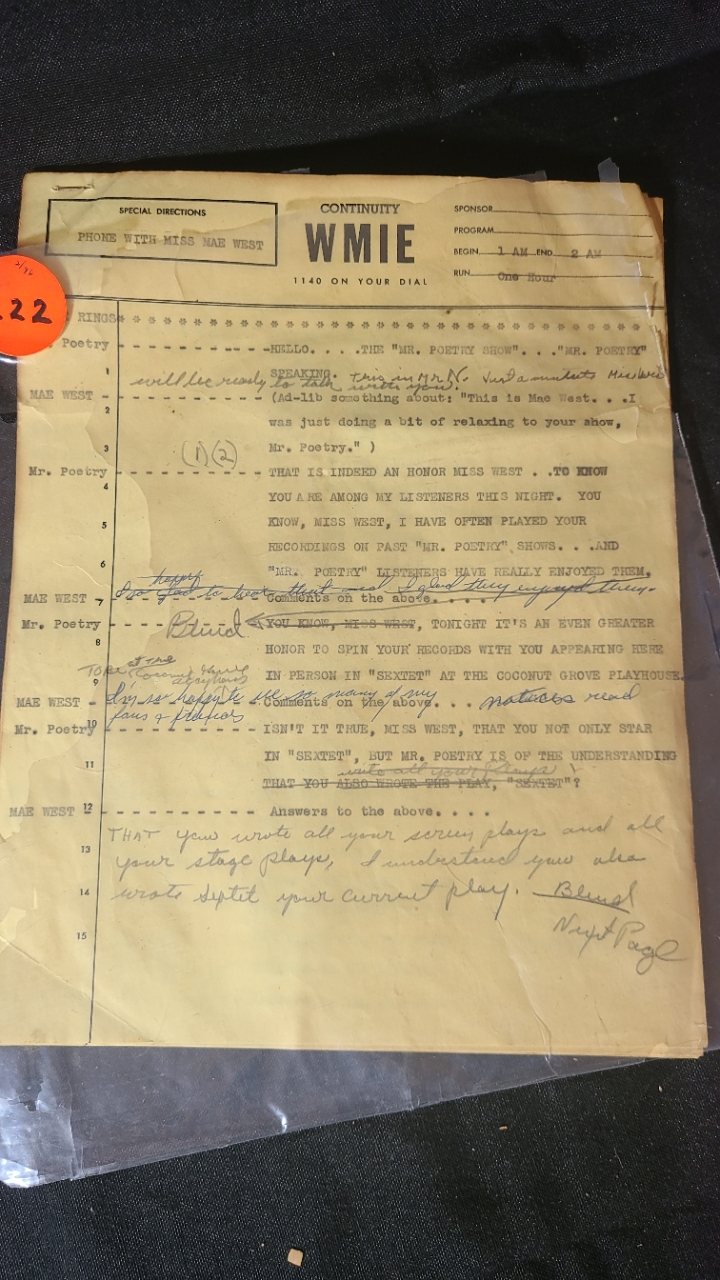 SPECIAL DIRECTIONS
PHONE WITH MISS MAE WEST
CONTINUITY
WMIE
1140 ON YOUR DIAL
SPONSOR
PROGRAM
BEGIN 1 AM END 2 AM
RUN One Hour
22
RINGS * * * * * * * * * * * * * * * * * * * * * * * * * * * * * * * * * * *
Poetry - - - - - - - - - - -HELLO. . . .THE "MR. POETRY SHOW". . ."MR. POETRY"
1 SPEAKING. This is Mr N. Just a minute Miss West
will be ready to talk with you.
MAE WEST - - - - - - - - - - - (Ad-lib something about: "This is Mae West. . .I
2 was just doing a bit of relaxing to your show,
3 (1)(2) Mr. Poetry." )
Mr. Poetry - - - - - - - - - - THAT IS INDEED AN HONOR MISS WEST . .TO KNOW
4 YOU ARE AMONG MY LISTENERS THIS NIGHT. YOU
5 KNOW, MISS WEST, I HAVE OFTEN PLAYED YOUR
RECORDINGS ON PAST "MR. POETRY" SHOWS. . .AND
6 "MR. POETRY" LISTENERS HAVE REALLY ENJOYED THEM.
happy
I so glad to hear that and I glad they enjoyed them.
MAE WEST - 7 Comments on the above. . . . .
Mr. Poetry - - - Blend YOU KNOW, MISS WEST, TONIGHT IT'S AN EVEN GREATER
8 HONOR TO SPIN YOUR RECORDS WITH YOU APPEARING HERE
at the
TO BE Coconut Grove
Playhouse
9 IN PERSON IN "SEXTET" AT THE COCONUT GROVE PLAYHOUSE.
I'm so happy to see so many of my
MAE WEST - Comments on the above. . . notices read
fans & friends
Mr. Poetry 10 - - - - - - - - ISN'T IT TRUE, MISS WEST, THAT YOU NOT ONLY STAR
11 IN "SEXTET", BUT MR. POETRY IS OF THE UNDERSTANDING
write all your plays
THAT YOU ALSO WROTE THE PLAY, "SEXTET"?
MAE WEST - 12 - - - - - - - - - Answers to the above. . . .
THAT you wrote all your screen plays and all
13 your stage plays, I understand you also
14 wrote Septet your current play. Blend
15 Next Page